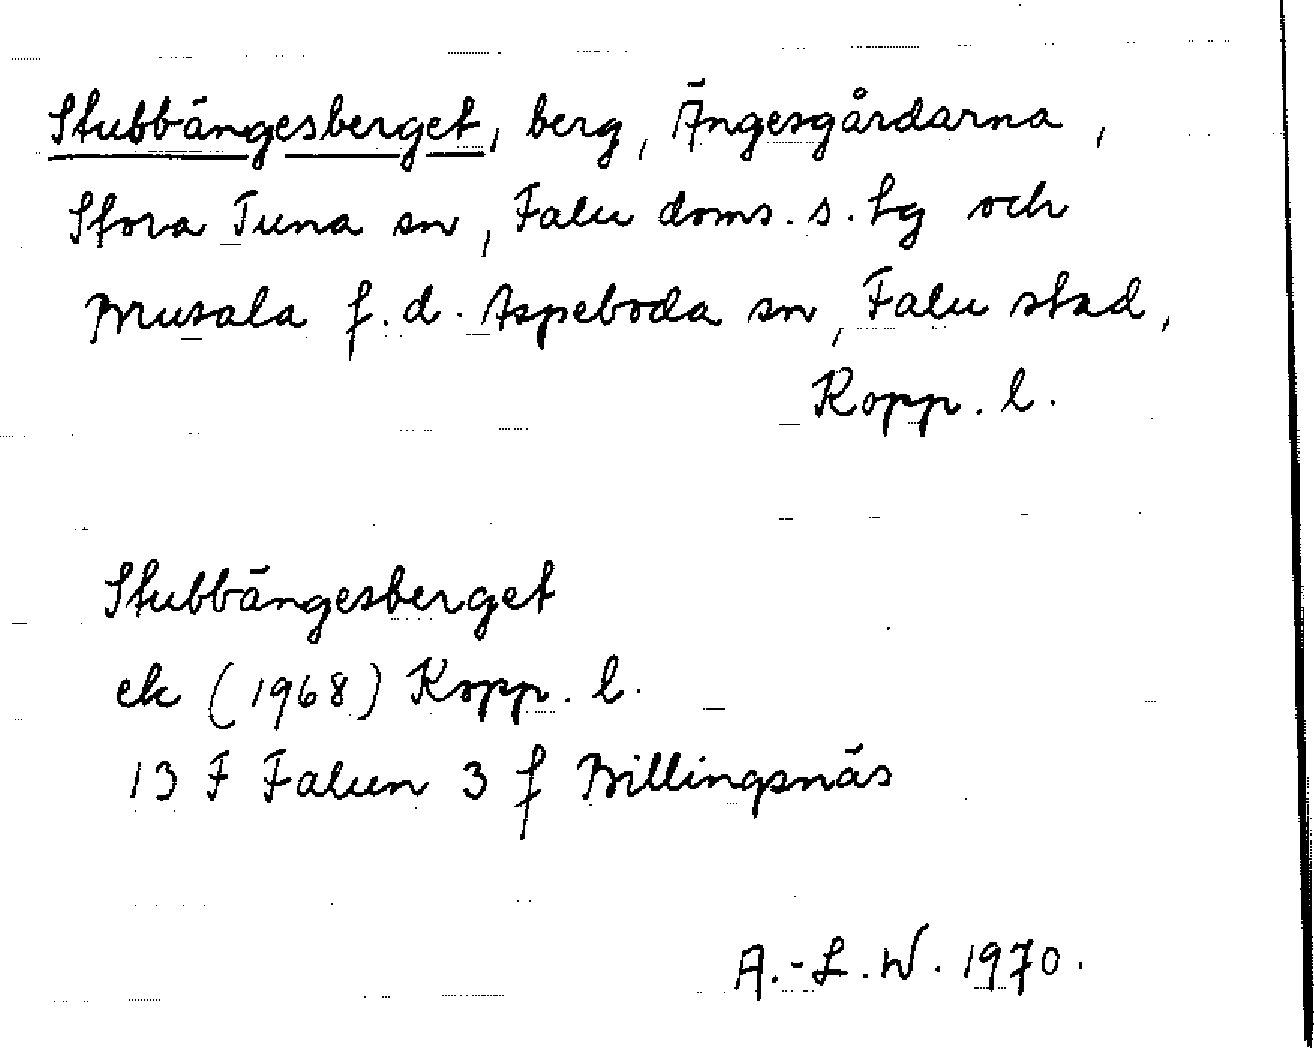 Stubbängesberget, berg, Ängesgårdarna,
Stora Tuna sn, Falu doms. s. tg och
Brusala f. d. Aspeboda sn, Falu stad,
Kopp. l.
Stubbängesberget
ek (1968) Kopp. l.
13 F Falun 3 f Billingsnäs
A.-L. W. 1970.